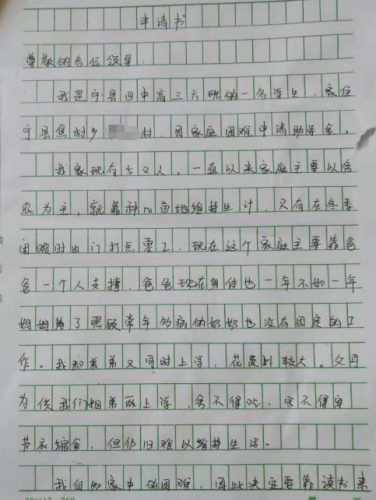 申请书
尊敬的各位领导：
我是宁县四中高三六班的一名学生，家住
宁县焦村乡 村，因家庭困难申请助学金。
我家现有七口人，一直以来家庭主要以务
农为主，就靠种10亩地维持生计，只有在冬季
闲暇时出门打点零工，现在这个家庭主要靠爸
爸一个人支撑，爸爸现在身体也一年不如一年
妈妈为了照顾常年多病的奶奶也没有固定的工
作。我和弟弟又同时上学，花费比较大。父母
为供我们姐弟两上学，舍不得吃，舍不得穿
节衣缩食，但仍旧难以维持生活。
我自知家中的困难，因此决定要靠读书来